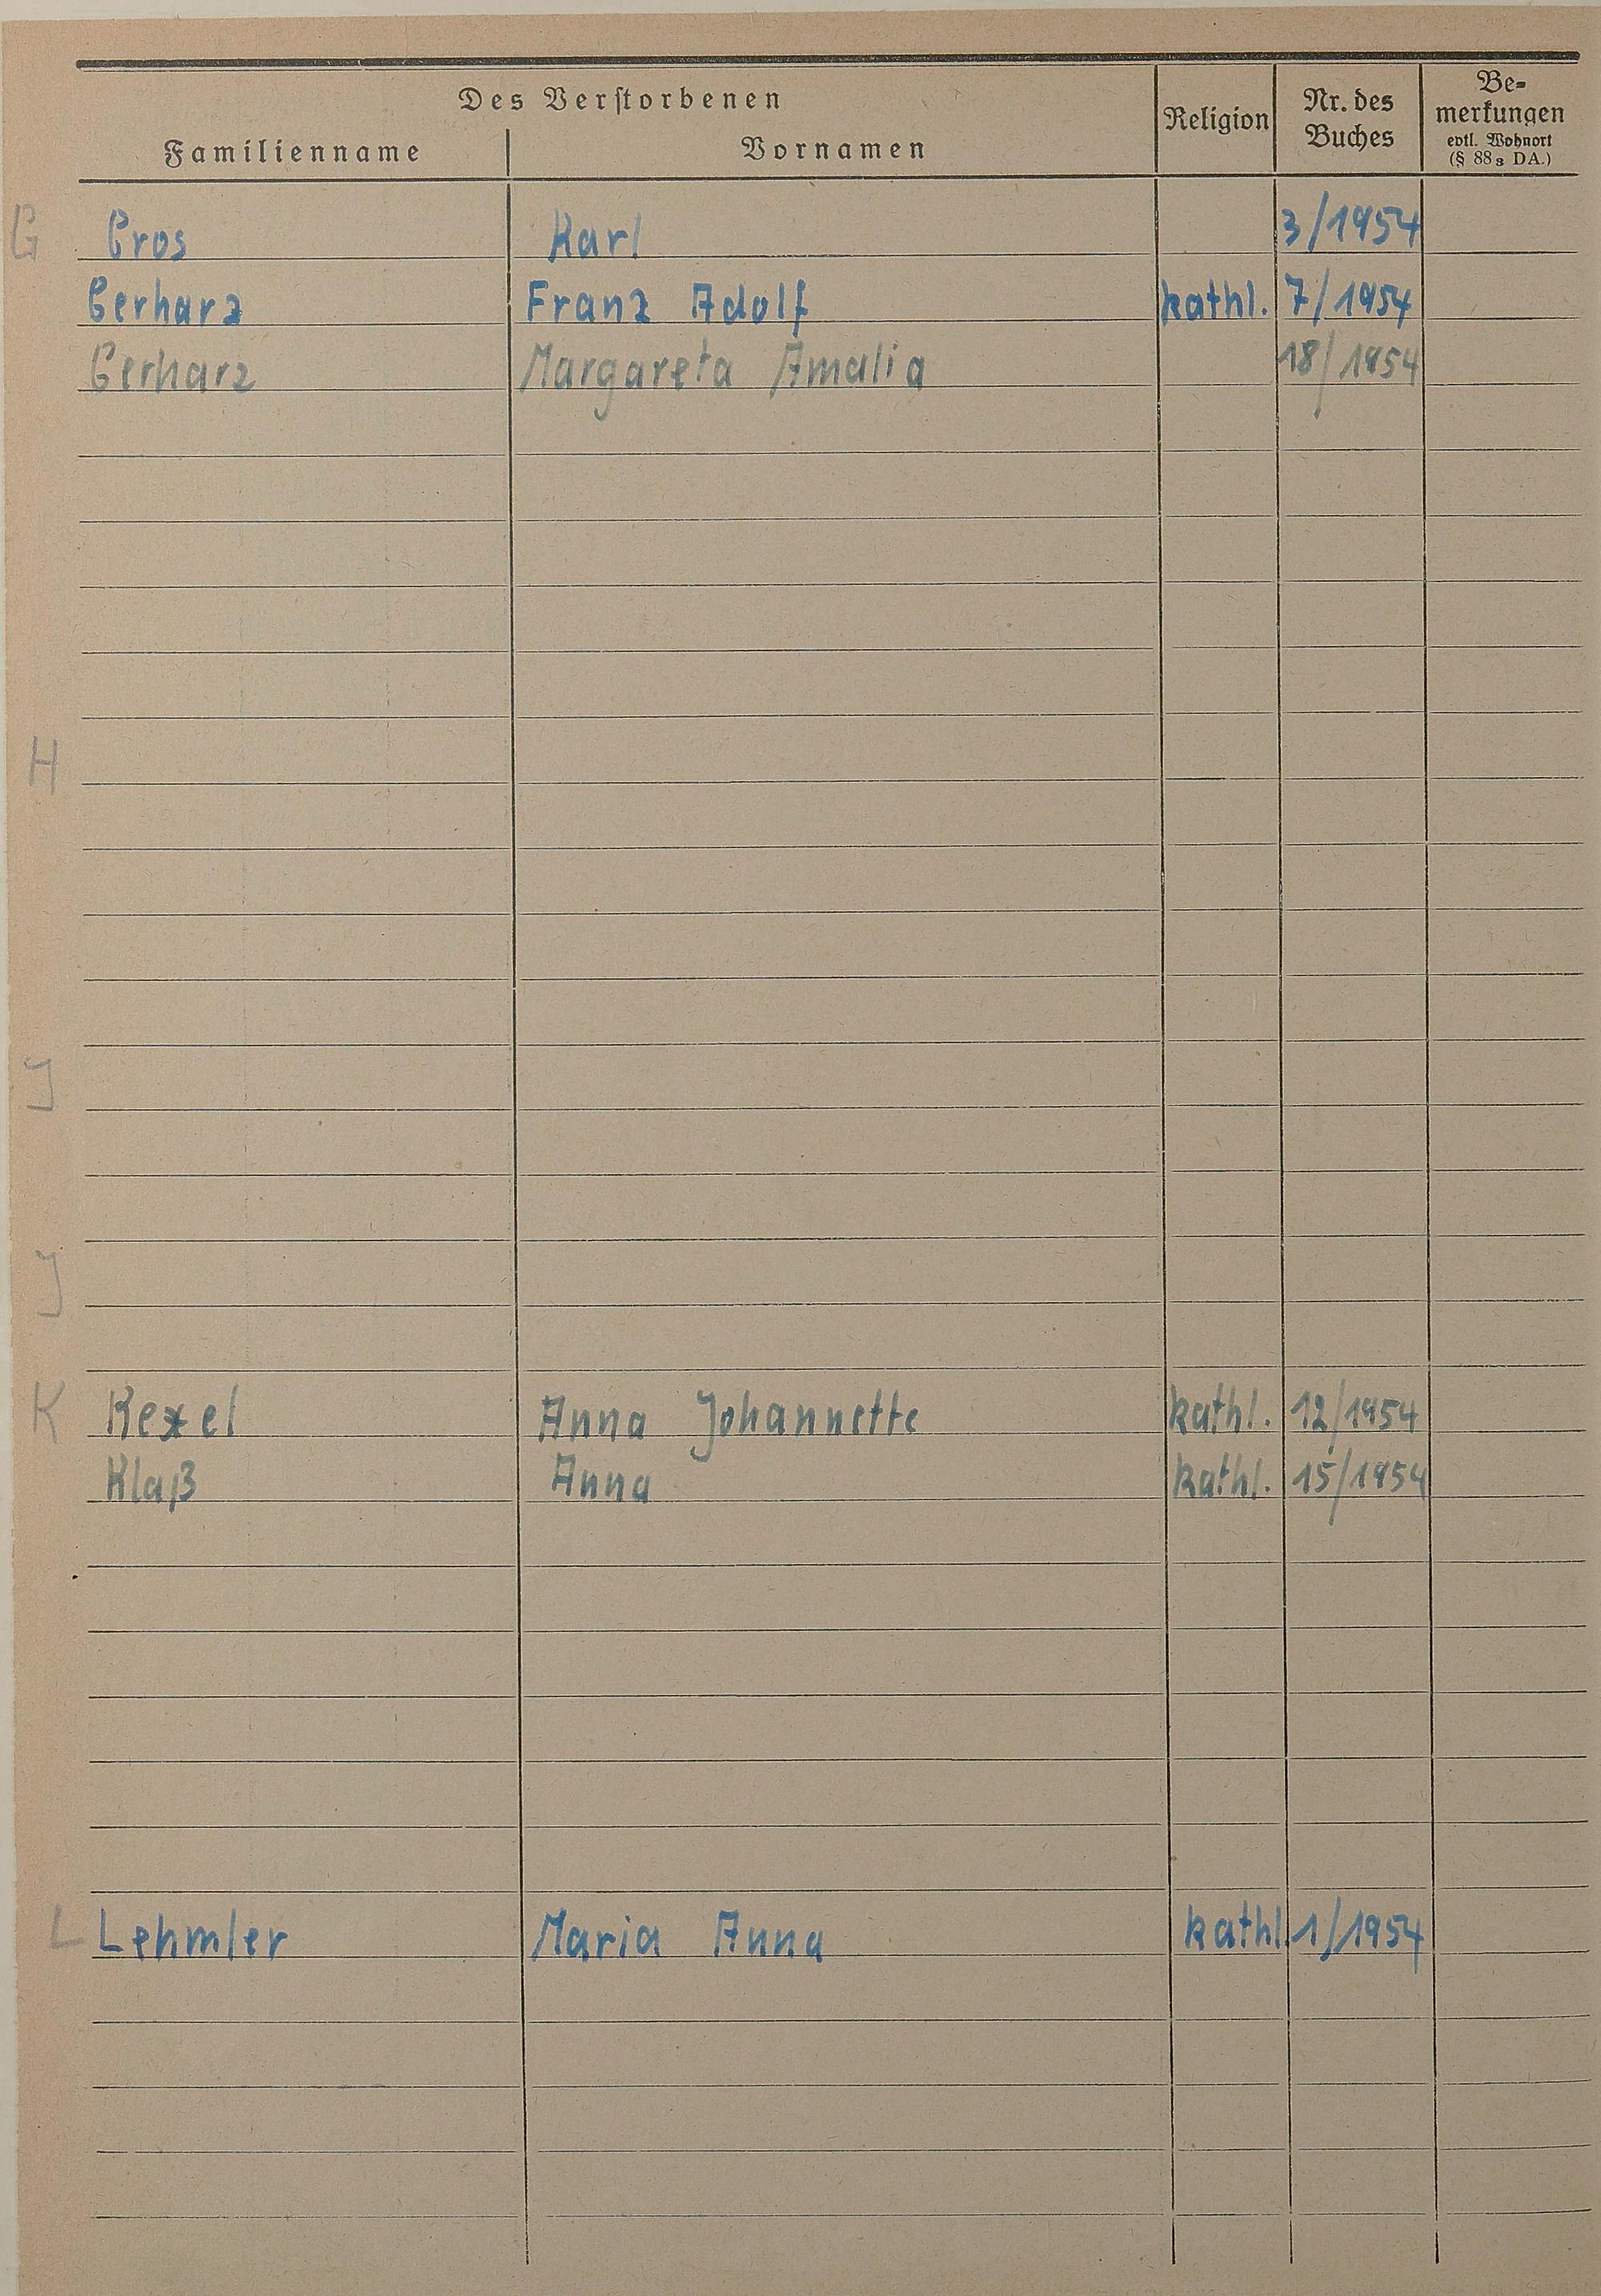 Des Verstorbenen
Familienname Vornamen Religion Nr. des Buches Be-merkungen evtl. Wohnort (§ 88 3 DA.)
G Gros Karl 3/1954
Gerharz Franz Adolf kathl. 7/1954
Gerharz Margareta Amalia 18/1954
H
J
J
K Kexel Anna Johannette kathl. 12/1954
Klaß Anna kathl. 15/1954
L Lehmler Maria Anna kathl. 1/1954